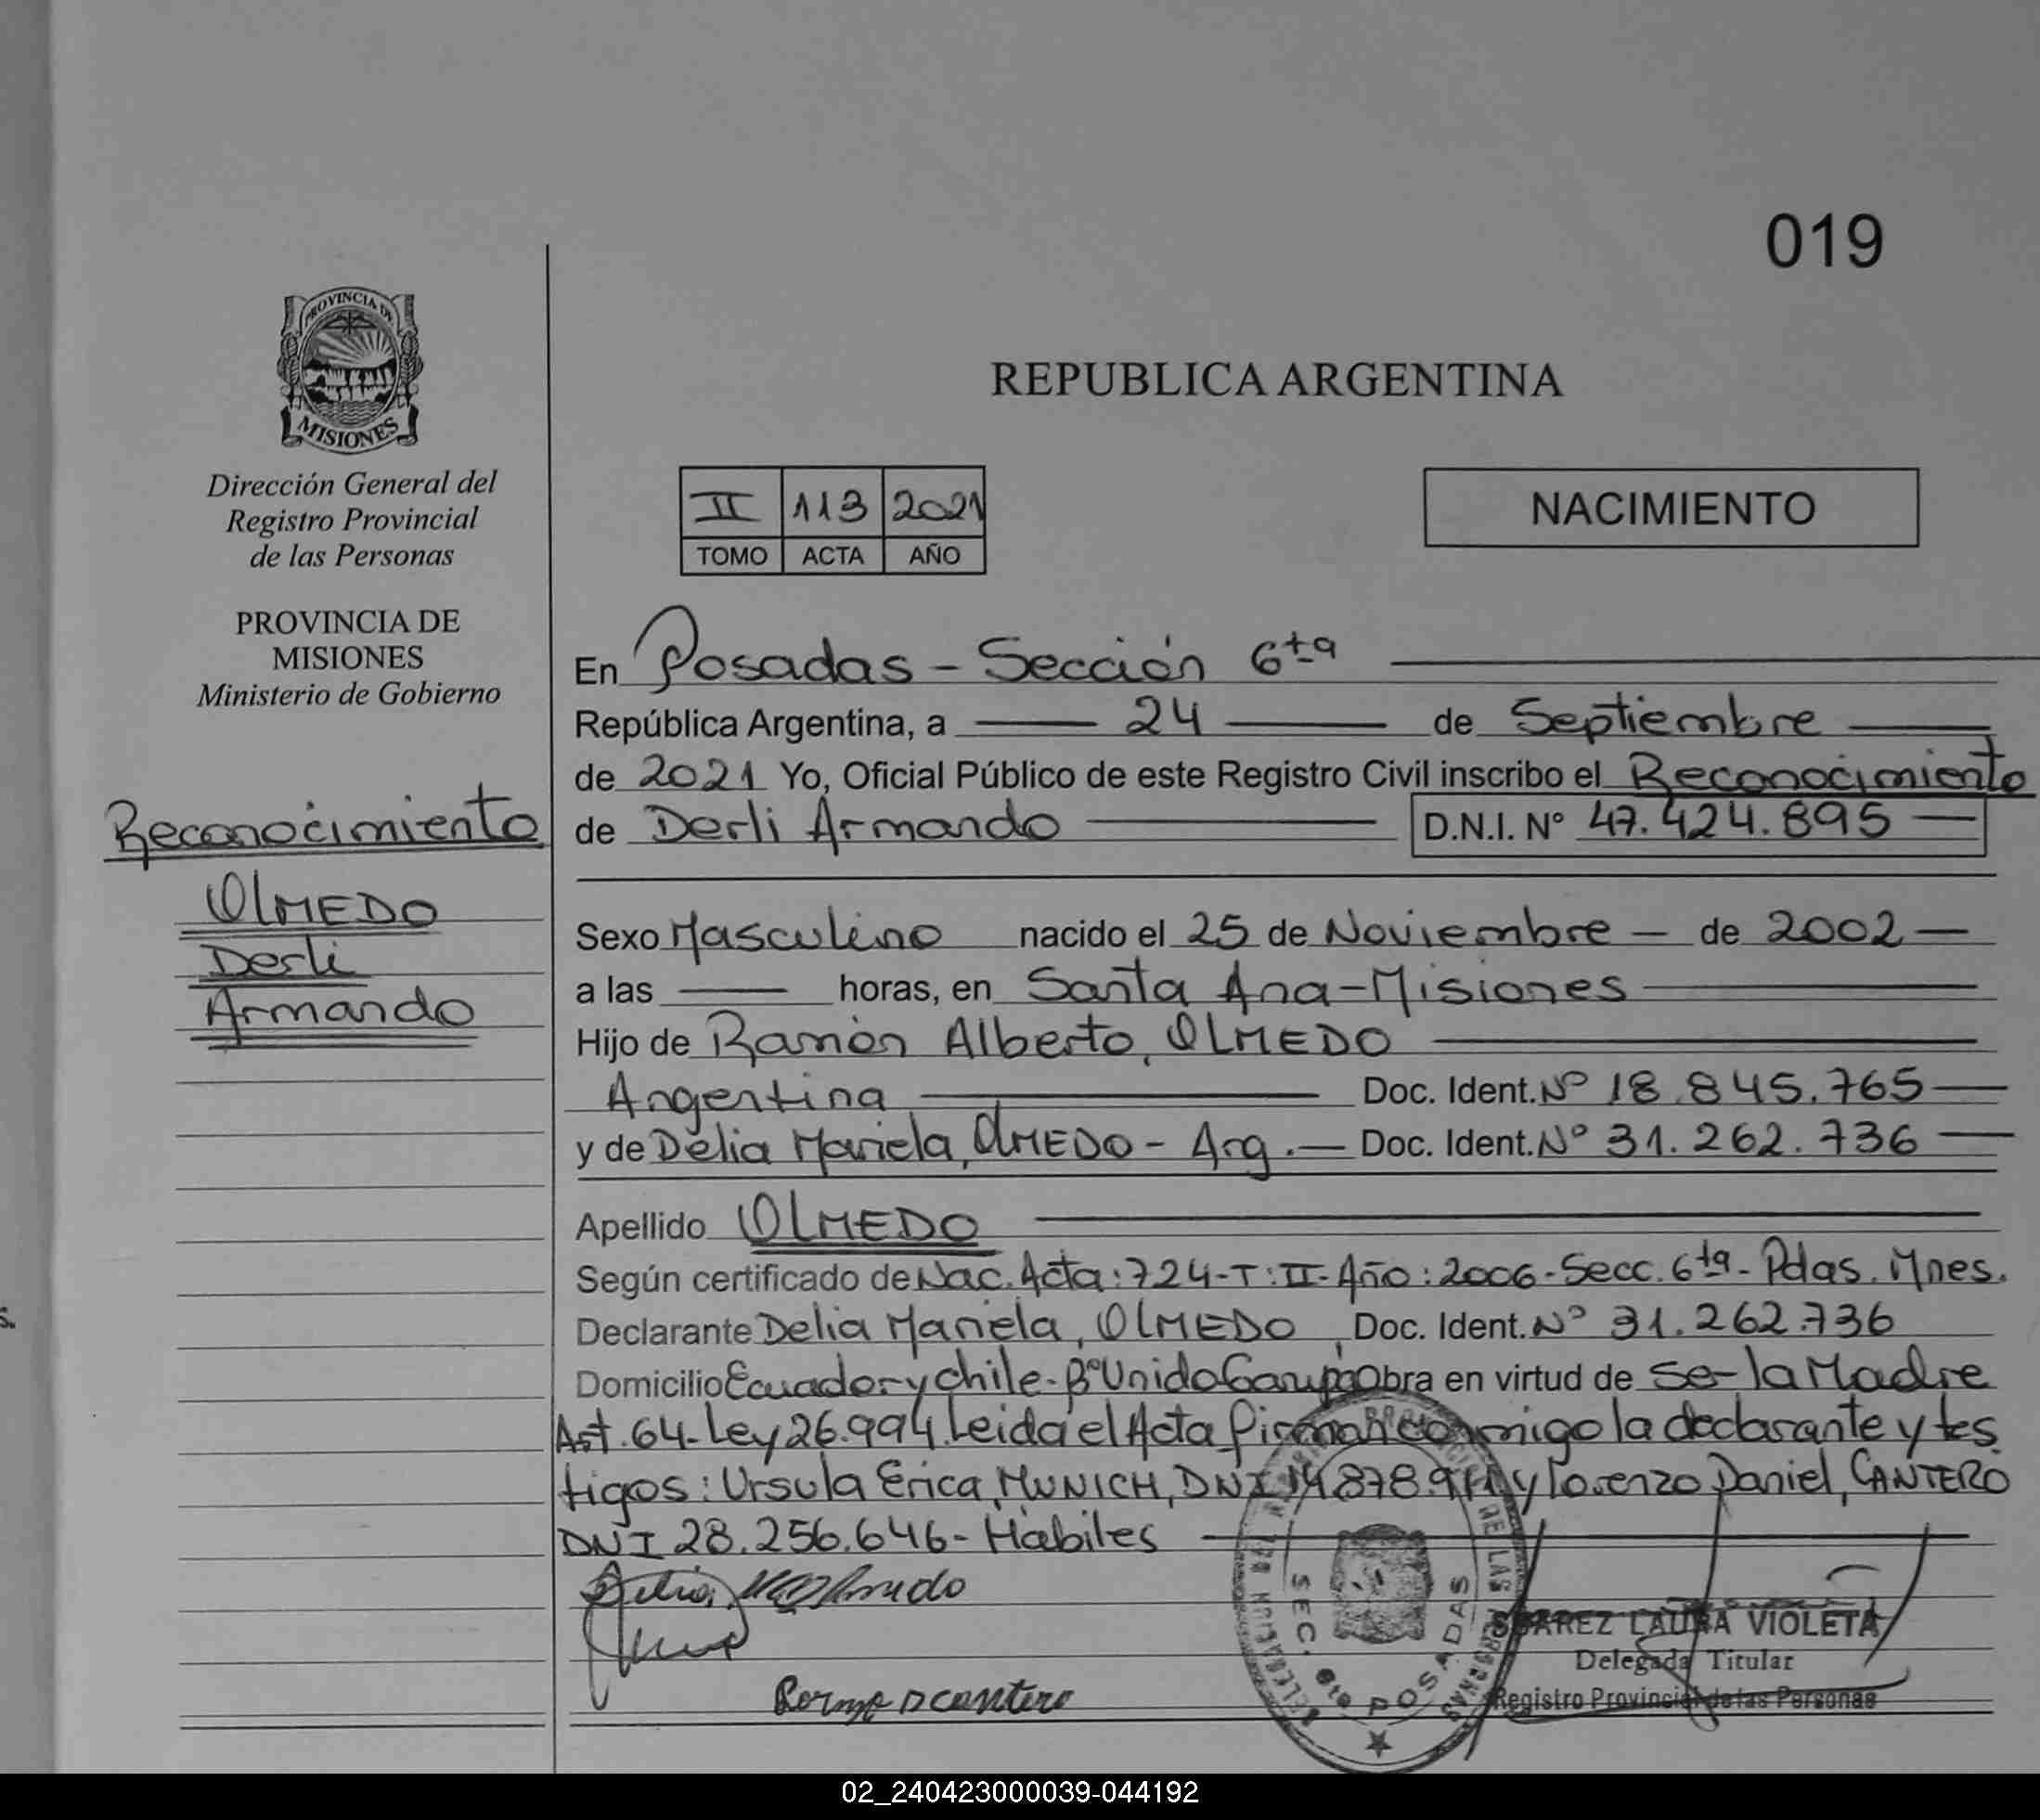 019
PROVINCIA DE
MISIONES
Dirección General del
Registro Provincial
de las Personas
PROVINCIA DE
MISIONES
Ministerio de Gobierno
Reconocimiento
OLMEDO
Derli
Armando
s.
REPUBLICA ARGENTINA
II 113 2021
TOMO ACTA AÑO
NACIMIENTO
En Posadas - Sección 6ta
República Argentina, a 24 de Septiembre
de 2021 Yo, Oficial Público de este Registro Civil inscribo el Reconocimiento
de Derli Armando D.N.I. Nº 47.424.895
Sexo Masculino nacido el 25 de Noviembre - de 2002
a las horas, en Santa Ana-Misiones
Hijo de Ramón Alberto, OLMEDO
Argentina Doc. Ident. Nº 18.845.765
y de Delia Mariela, OLMEDO - Arg. Doc. Ident. Nº 31.262.736
Apellido OLMEDO
Según certificado de Nac. Acta: 724-T: II-Año: 2006-Secc. 6ta- Pdas. Mnes.
Declarante Delia Mariela, OLMEDO Doc. Ident. Nº 31.262.736
Domicilio Ecuador y Chile - Bº Unido Garupá Obra en virtud de Ser la Madre
Art. 64-Ley 26.994. Leida el Acta firman conmigo la declarante y tes
tigos: Ursula Erica, MUNICH, DNI y Lorenzo Daniel, CANTERO
DNI 28.256.646- Hábiles
SEC. 6ta POSADAS
DE LAS PERSONAS
SUAREZ LAURA VIOLETA
Delegada Titular
Registro Provincial de las Personas
02_240423000039-044192